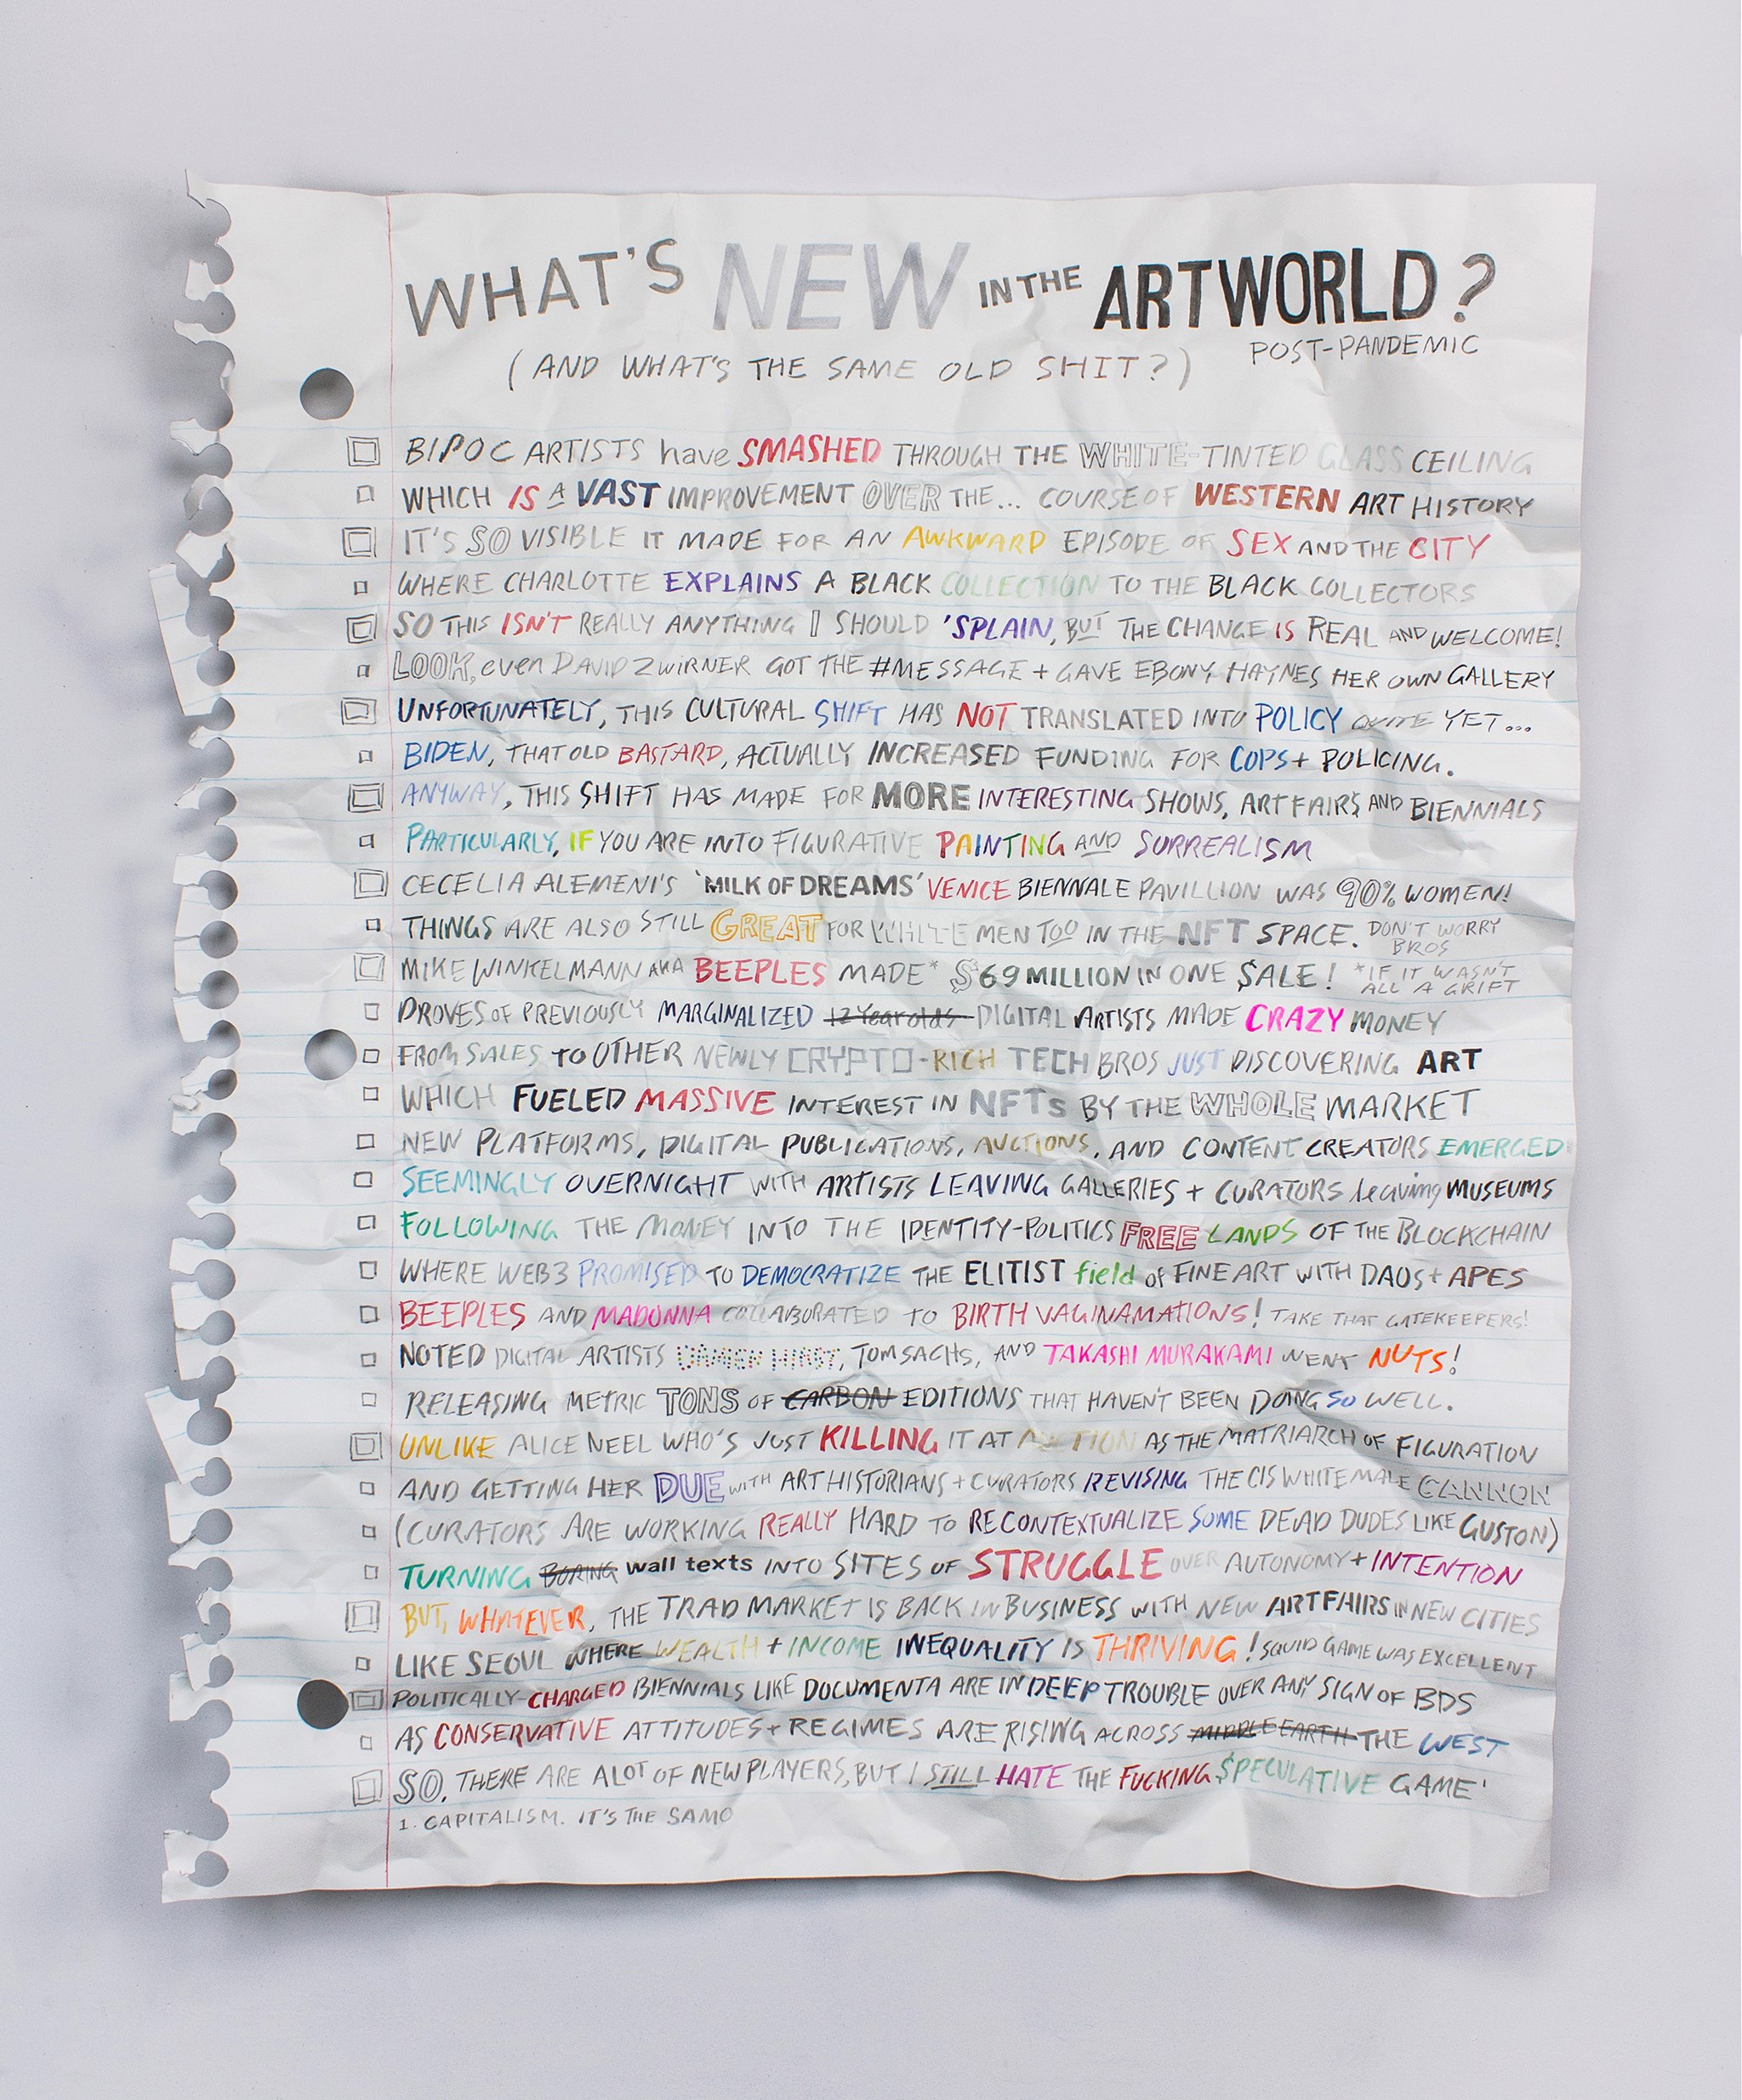 WHAT'S NEW IN THE ARTWORLD?
POST-PANDEMIC
(AND WHAT'S THE SAME OLD SHIT?)
BIPOC ARTISTS have SMASHED THROUGH THE WHITE-TINTED GLASS CEILING
WHICH IS A VAST IMPROVEMENT OVER THE... COURSE OF WESTERN ART HISTORY
IT'S SO VISIBLE IT MADE FOR AN AWKWARD EPISODE OF SEX AND THE CITY
WHERE CHARLOTTE EXPLAINS A BLACK COLLECTION TO THE BLACK COLLECTORS
SO THIS ISN'T REALLY ANYTHING I SHOULD 'SPLAIN, BUT THE CHANGE IS REAL AND WELCOME!
LOOK, even DAVID ZWIRNER GOT THE #MESSAGE + GAVE EBONY HAYNES HER OWN GALLERY
UNFORTUNATELY, THIS CULTURAL SHIFT HAS NOT TRANSLATED INTO POLICY QUITE YET...
BIDEN, THAT OLD BASTARD, ACTUALLY INCREASED FUNDING FOR COPS + POLICING.
ANYWAY, THIS SHIFT HAS MADE FOR MORE INTERESTING SHOWS, ART FAIR$ AND BIENNIALS
PARTICULARLY, IF YOU ARE INTO FIGURATIVE PAINTING AND SURREALISM
CECELIA ALEMENI'S 'MILK OF DREAMS' VENICE BIENNALE PAVILLION WAS 90% WOMEN!
THINGS ARE ALSO STILL GREAT FOR WHITE MEN TOO IN THE NFT SPACE. DON'T WORRY BROS
MIKE WINKELMANN AKA BEEPLES MADE* $69 MILLION IN ONE $ALE! *IF IT WASN'T ALL A GRIFT
DROVES OF PREVIOUSLY MARGINALIZED 12 Year olds DIGITAL ARTISTS MADE CRAZY MONEY
FROM SALES TO OTHER NEWLY CRYPTO-RICH TECH BROS JUST DISCOVERING ART
WHICH FUELED MASSIVE INTEREST IN NFTs BY THE WHOLE MARKET
NEW PLATFORMS, DIGITAL PUBLICATIONS, AUCTIONS, AND CONTENT CREATORS EMERGED
SEEMINGLY OVERNIGHT WITH ARTISTS LEAVING GALLERIES + CURATORS leaving MUSEUMS
FOLLOWING THE MONEY INTO THE IDENTITY-POLITICS FREE LANDS OF THE BLOCKCHAIN
WHERE WEB3 PROMISED TO DEMOCRATIZE THE ELITIST field of FINE ART WITH DAOS + APES
BEEPLES AND MADONNA COLLABORATED TO BIRTH VAGINAMATIONS! TAKE THAT GATEKEEPERS!
NOTED DIGITAL ARTISTS DAMEN HIRST, TOM SACHS, AND TAKASHI MURAKAMI WENT NUTS!
RELEASING METRIC TONS OF CARBON EDITIONS THAT HAVEN'T BEEN DOING SO WELL.
UNLIKE ALICE NEEL WHO'S JUST KILLING IT AT AUCTION AS THE MATRIARCH OF FIGURATION
AND GETTING HER DUE WITH ART HISTORIANS + CURATORS REVISING THE CIS WHITE MALE CANNON
(CURATORS ARE WORKING REALLY HARD TO RECONTEXTUALIZE SOME DEAD DUDES LIKE GUSTON)
TURNING BORING wall texts INTO SITES OF STRUGGLE OVER AUTONOMY + INTENTION
BUT, WHATEVER, THE TRAD MARKET IS BACK IN BUSINESS WITH NEW ART FAIRS IN NEW CITIES
LIKE SEOUL WHERE WEALTH + INCOME INEQUALITY IS THRIVING! SQUID GAME WAS EXCELLENT
POLITICALLY-CHARGED BIENNIALS LIKE DOCUMENTA ARE IN DEEP TROUBLE OVER ANY SIGN OF BDS
AS CONSERVATIVE ATTITUDES + REGIMES ARE RISING ACROSS MIDDLE EARTH THE WEST
SO, THERE ARE A LOT OF NEW PLAYERS, BUT I STILL HATE THE FUCKING $PECULATIVE GAME¹
1. CAPITALISM. IT'S THE SAMO